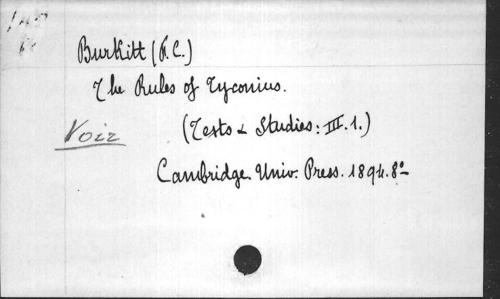 Burkitt (F. C.)
The Rules of Tyconius.
Voir (Texts & Studies: III. 1.)
Cambridge. Univ. Press. 1894. 8°